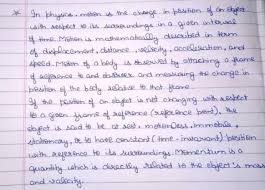 * In physics, motion is the change in position of an object
with respect to its surroundings in a given interval
of time. Motion is mathematically described in term
of displacement, distance, velocity, acceleration, and
speed. Motion of a body is observed by attaching a frame
of reference to and observer and measuring the change in
position of the body relative to that frame.
If the position of an object is not changing with respect
to a given frame of reference (reference point), the
object is said to be at rest, motionless, immobile,
stationary, or to have constant (time-invariant) position
with reference to its surrounding. Momentum is a
quantity which is directly related to the object's mass
and velocity.